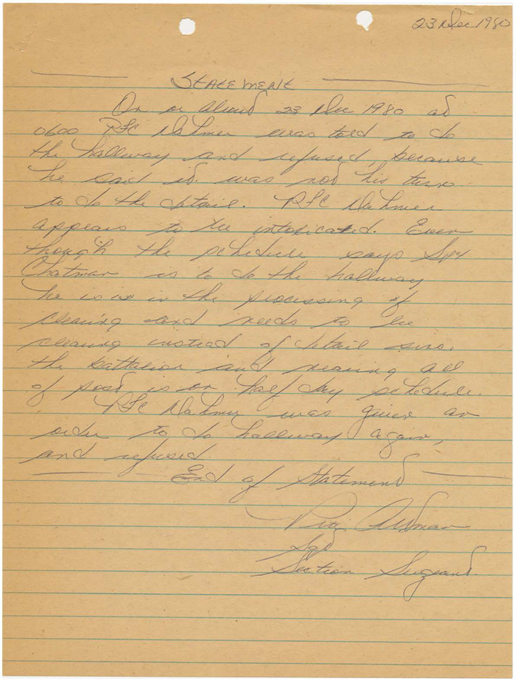 23 Dec 1980
Statement
On or about 23 Dec 1980 at
0600 PFC Dahmer was told to do
the hallway and refused, because
he said it was not his turn
to do the detail. PFC Dahmer
appears to be intoxicated. Even
though the schedule says Sp4
Chatman is to do the hallway
he is in the processing of
clearing and needs to be
clearing instead of detail since
the battalion and nearing all
of post is on half day schedule.
PFC Dahmer was given an
order to do hallway again,
and refused
End of Statement
Sgt
Section Sergeant